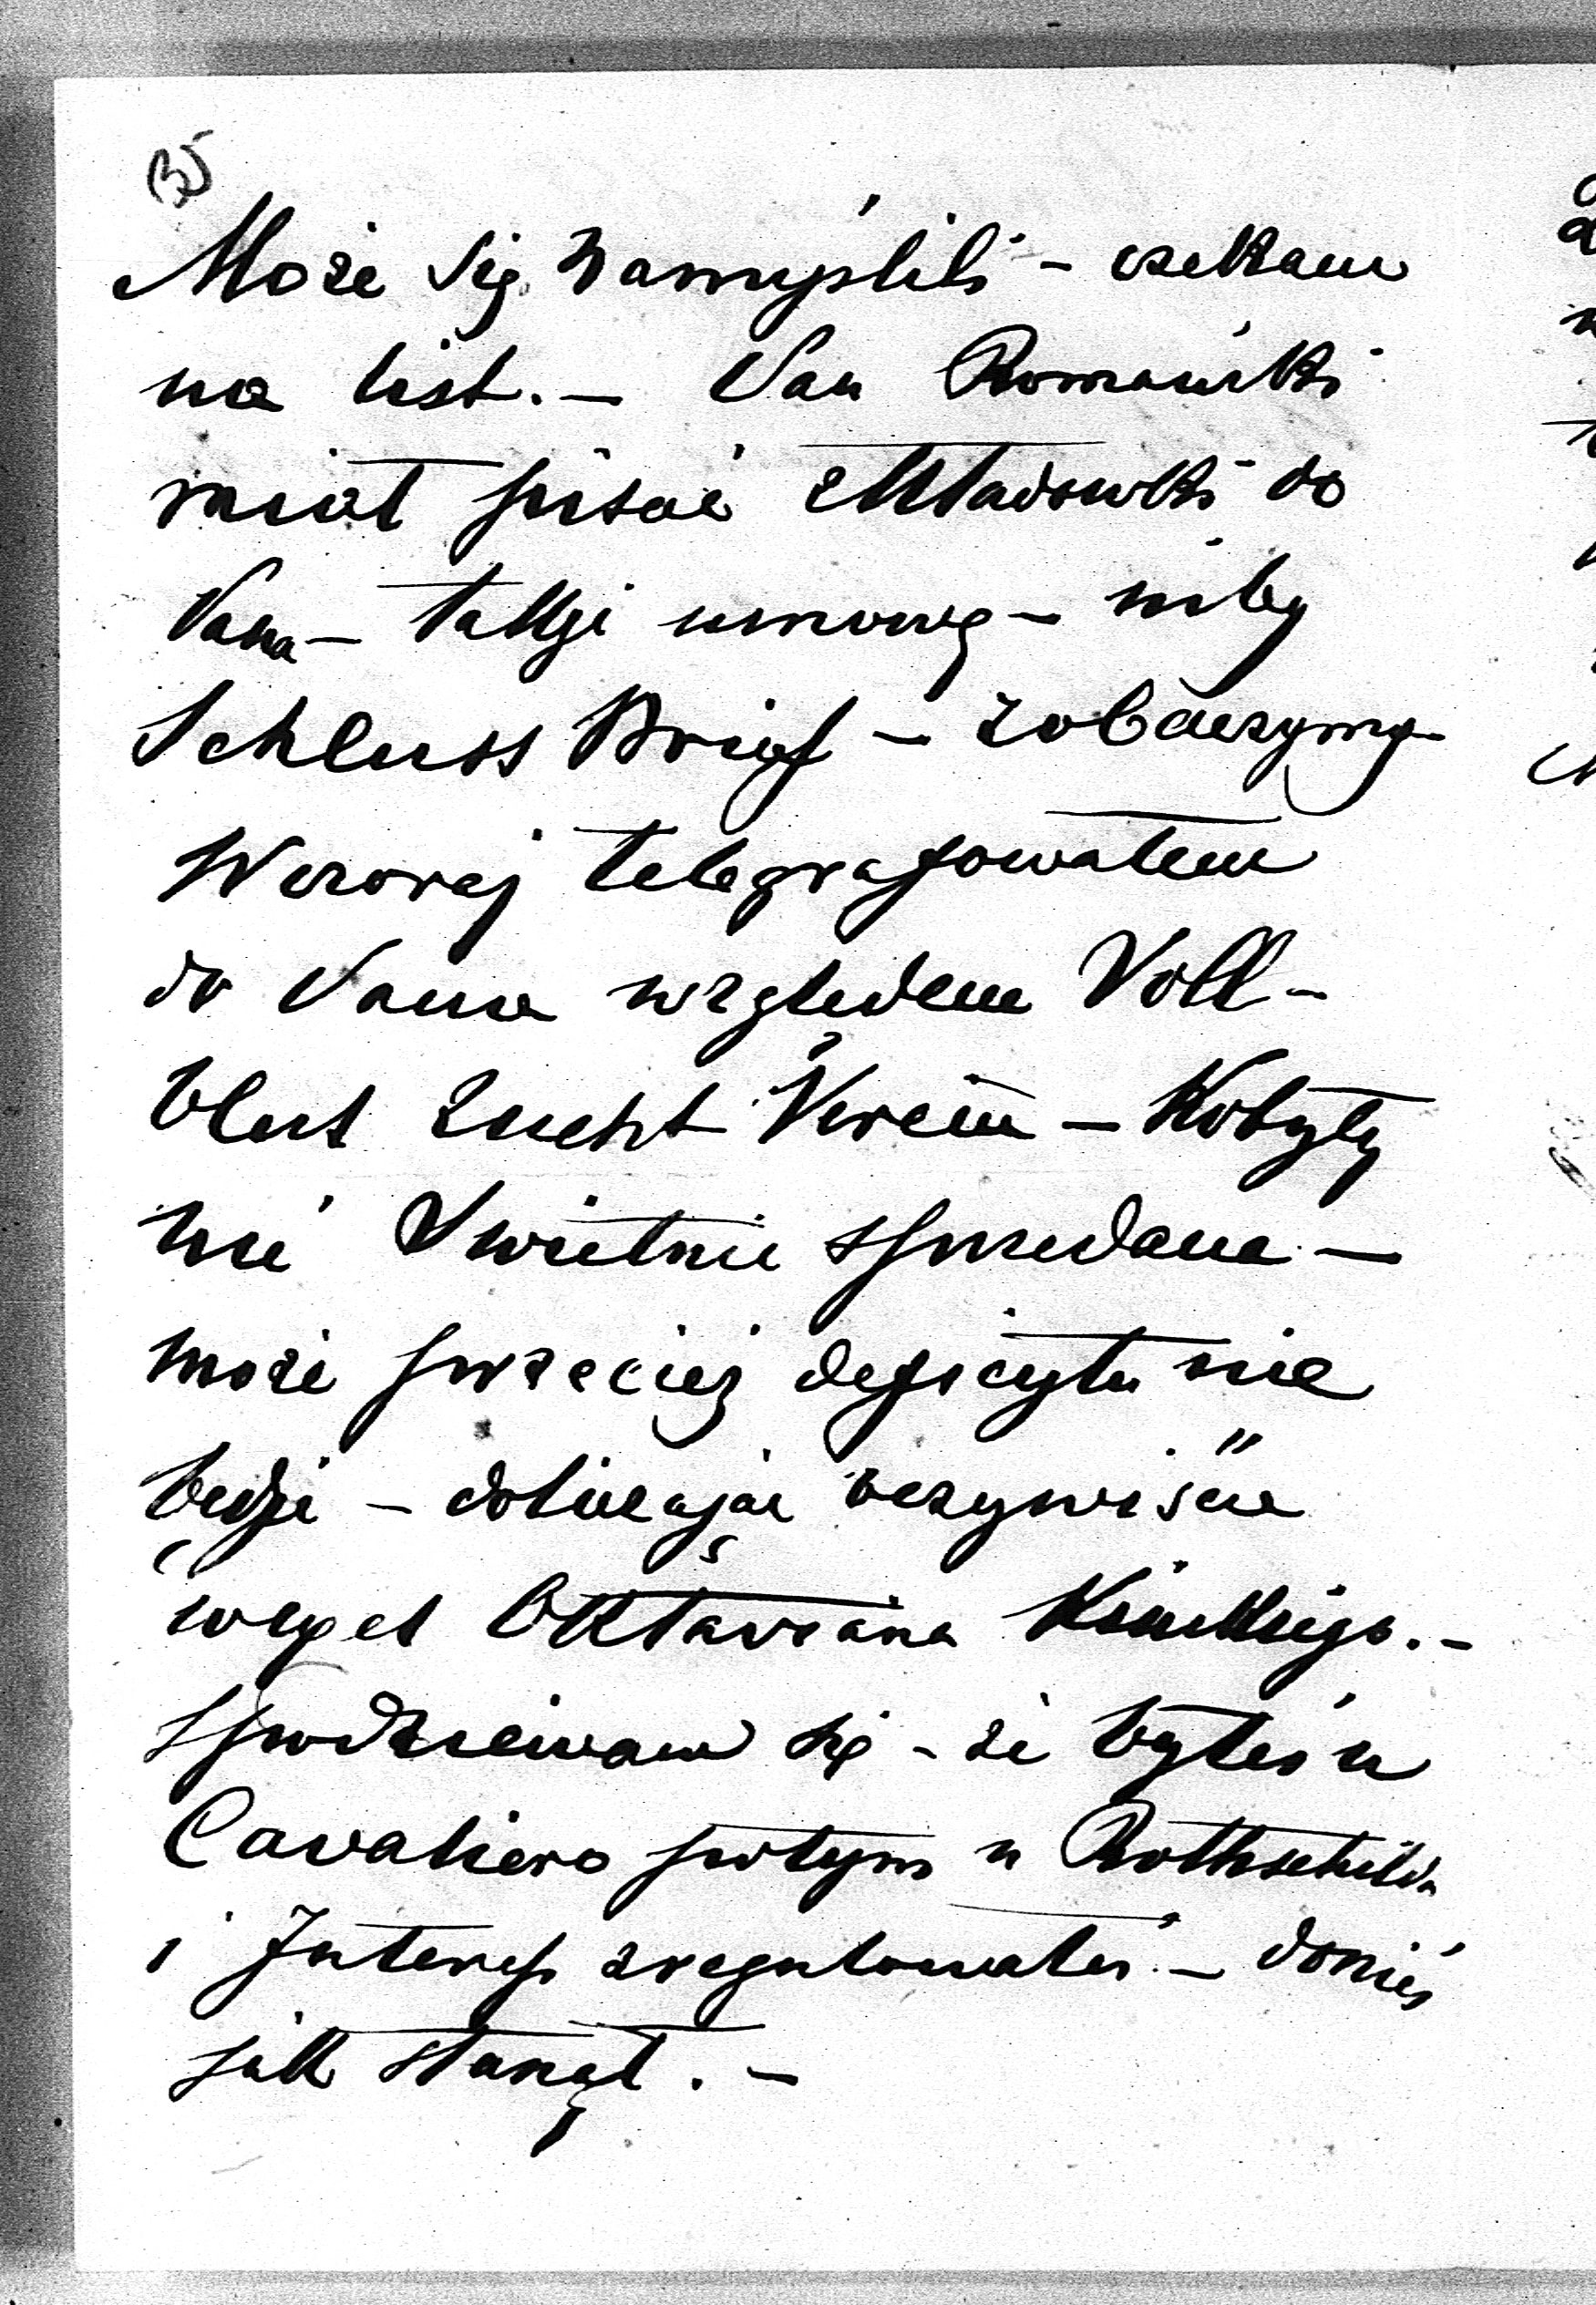 35
Może się namyślili – czekam
na list. – Pan Romański
miał pisać z Kładówki do
Pana – takżi umowę – niby
Schluss Brief – zobaczymy
Wczoraj telegrafowałem
do Pana względem Voll-
blut Zucht Verein – Kobyły
nié Swietnie sprzedane –
może przecież deficytu nie
będzi – doliczając oczywiście
Oktaviana Kinskiego. –
spodziewam się – że byłeś u
Cavaliero potym u Rothschilda
i Interess zregulowałeś – donieś
jak stanął. –